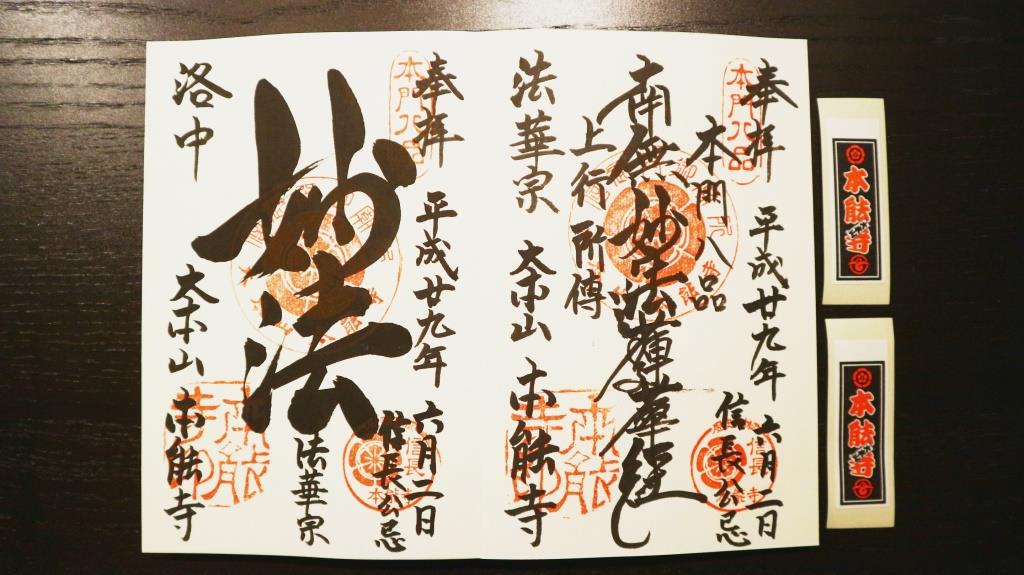 奉拝
平成廿九年
六月二日
信長公忌
本門八品
南無妙法蓮華経
上行所傳
法華宗
大本山
本能寺
本門八品
信長
本能寺
奉拝
平成廿九年
六月二日
信長公忌
妙法
法華宗
洛中
大本山
本能寺
本門八品
本能寺
本能寺
本能寺